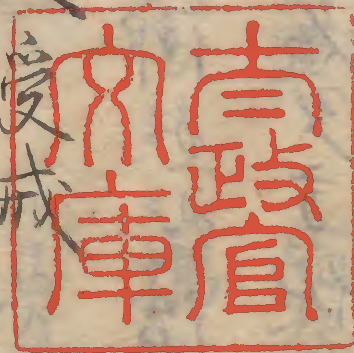 太政官
文庫
受戒